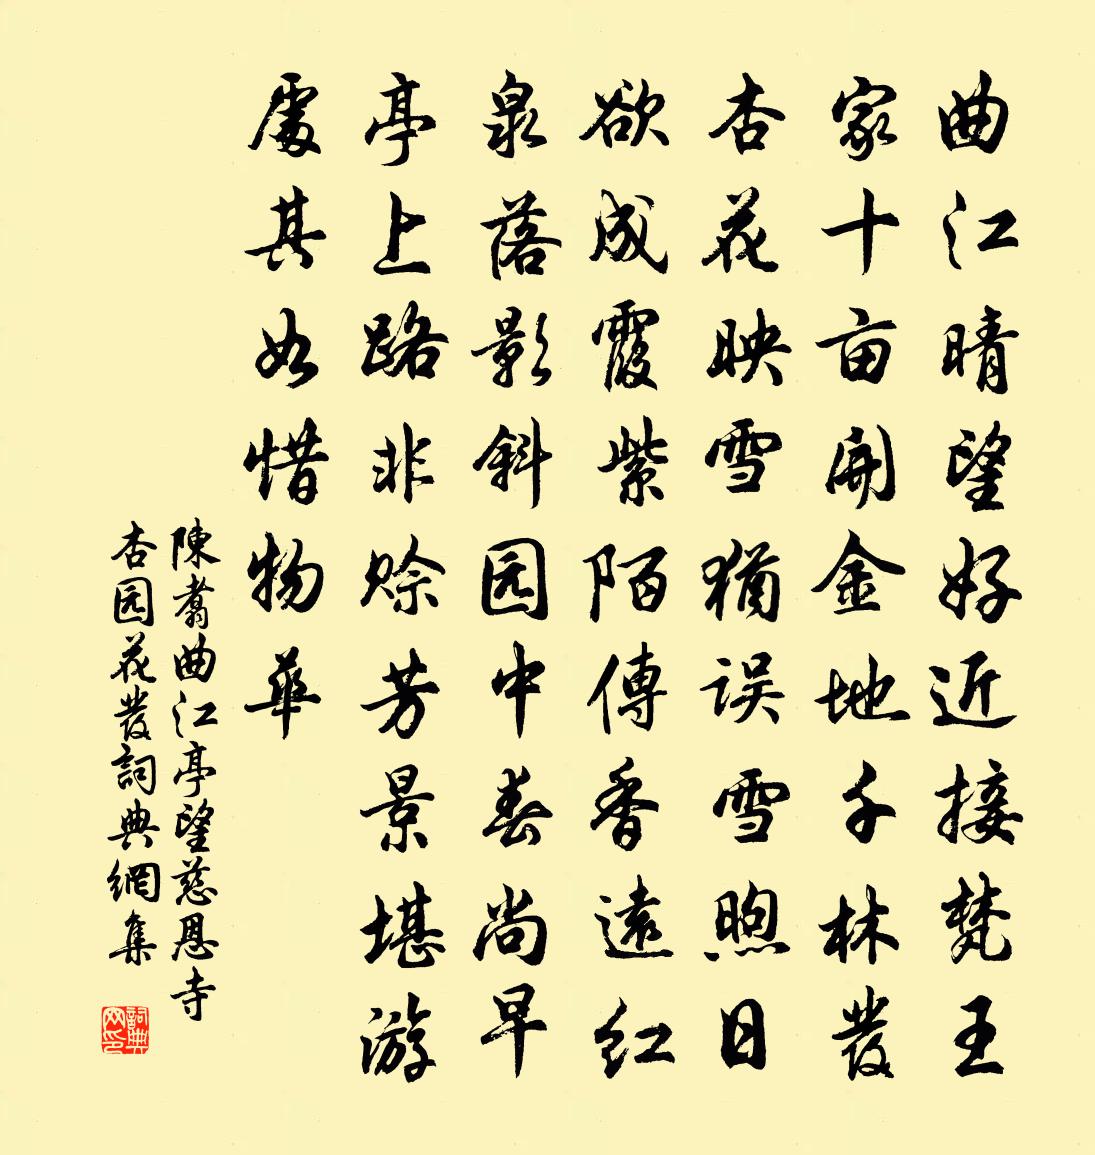 曲江晴望好近接梵王
家十亩開金地千林發
杏花映雪猶误雪煦日
欲成霞紫陌傳香遠红
泉落影斜园中春尚早
亭上路非赊芳景堪游
處其如惜物華
陳翥曲江亭望慈恩寺
杏园花發詞典網集
詞典网印